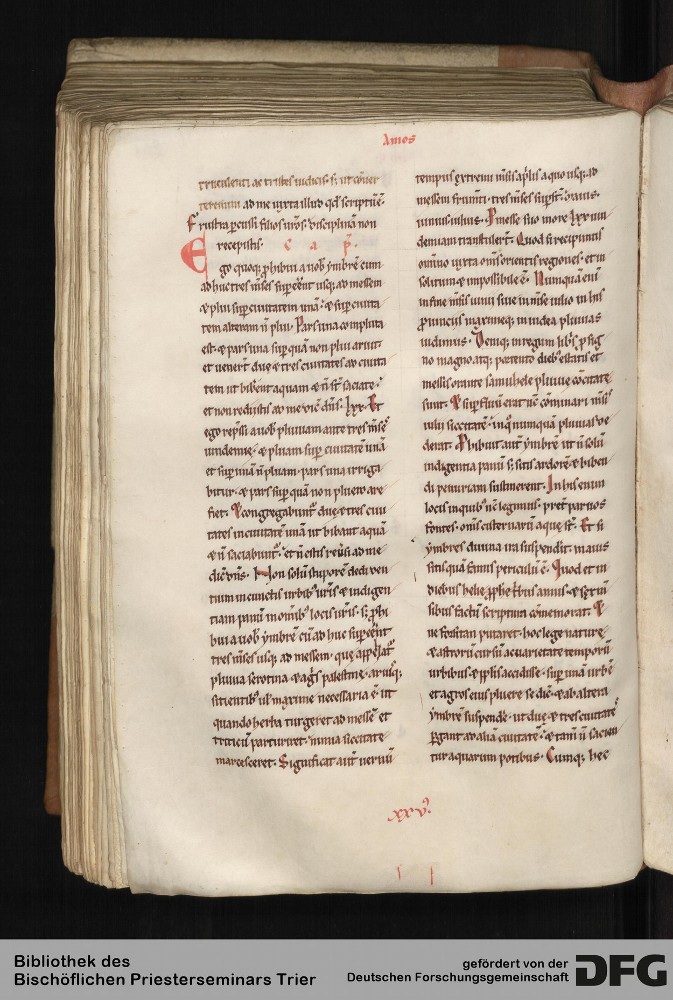 Amos
truculenti ac tristes iudicis· sꝫ ut cōuer
terentur ad me iuxta illud qđ scriptū ē·
Frustra percussi filios ur̄os· disciplinā non
recepistis· C a p̄·
Ego quoq; prohibui a uob ymbrē cum
adhuc tres m̄ses sup̄eēnt usq; ad messem
& plui sup ciuitatem unā· & sup ciuita
tem alteram n̄ plui· Pars una compluta
est· & pars una sup quā non plui aruit·
et uener̄t duę & tres ciuitates ad ciuita
tem ut bibent aquam & n̄ st̄ saciate·
et non redistis ad me dic̄ dn̄s· lxx· Et
ego rep̄ssi a uob pluuiam ante tres m̄sē
uindemię· & pluam sup ciuitatē unā
et sup unā n̄ pluam· pars una irriga
bitur· & pars sup quā non pluero are
fiet· & congregabunt᷑ duę & tres ciui
tates in ciuitatē unā ut bibant aquā
& n̄ saciabunt᷑· et n̄ estis reūsi ad me
dic̄ dn̄s· Non solū stuporē dedi den
tium in cunctis urbib; ur̄is & indigen
tiam panū in om̄ib; locis ur̄is· sꝫ phi
bui a uob ymbrē cū adhuc sup̄eēnt
tres m̄ses usq; ad messem· que appellat᷑
pluuia serotina & agris palestinę· aruisq;
sitientib; ul maxime necessaria ē· ut
quando herba turgeret ad messē et
triticū parturiret· nimia siccitate
marcesceret· Significat aut̄ uernū
tempus extremi m̄sis ap̄lis a quo usq; ad
messem frum̄ti· tres m̄ses sup̄st̄· maius·
iunius iulius· P messe suo more lxx uin
demiam transtuler̄t· Quod si recipimus
omnino iuxta om̄s orientis regiones· et in
solitum & impossibile ē· Numquā eni
in fine m̄sis iunii siue in m̄se iulio in his
prouinciis maximeq; in iudea pluuias
uidimus· Deniq; in regum libris p̄ sig
no magno atq; portento dieb; estatis et
messis orante samuhele pluuie cōcitate
sunt· & sup fluū erat nc̄ cōminari m̄sis
iulii siccitatē· in q numquā pluuias ui
derat· Phibuit aut̄ ymbrē ut n̄ solū
indigentia panū sꝫ sitis ardorē & biben
di penuriam sustinerent· In his enim
locis in quib; nc̄ degimus· pret̄ paruos
fontes· om̄s cisternarū aque st̄· Et si
ymbres diuina ira suspendit· maius
sitis quā famis periculū ē· Quod et in
diebus helie pphete trib; annis & sex m̄
sibus factū scriptura cōmemorat· &
ne forsitan putaret᷑ hoc lege naturę
& astrorū cursū ac uarietate temporū
urbibus & pp̄lis accidisse· sup unā urbē
et agros eius pluere se dic̄ & ab altera
ymbrē suspendē· ut duę & tres ciuitates
pergant ad aliā ciuitatē· & tam̄ n̄ sacien
tur aquarum potibus· Cumq; hec
xxvꝰ
Bibliothek des
Bischöflichen Priesterseminars Trier
gefördert von der
Deutschen Forschungsgemeinschaft
DFG